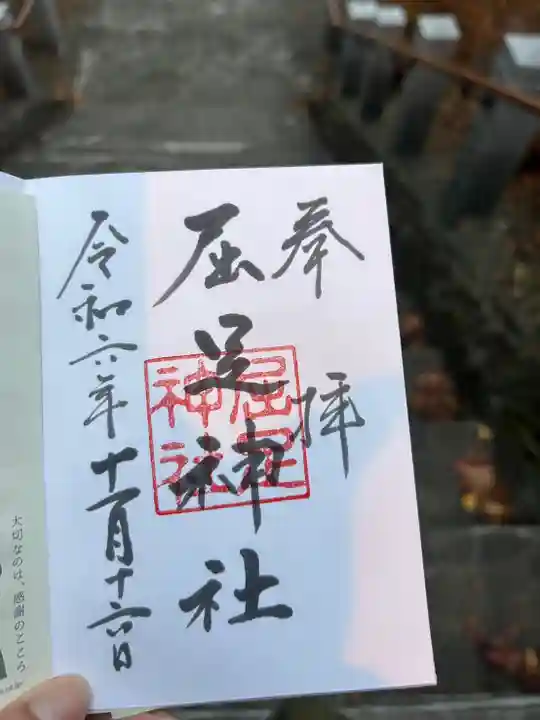 奉拝
屈足神社
屈足
神社
令和六年十一月十六日
大切なのは、感謝のこころ